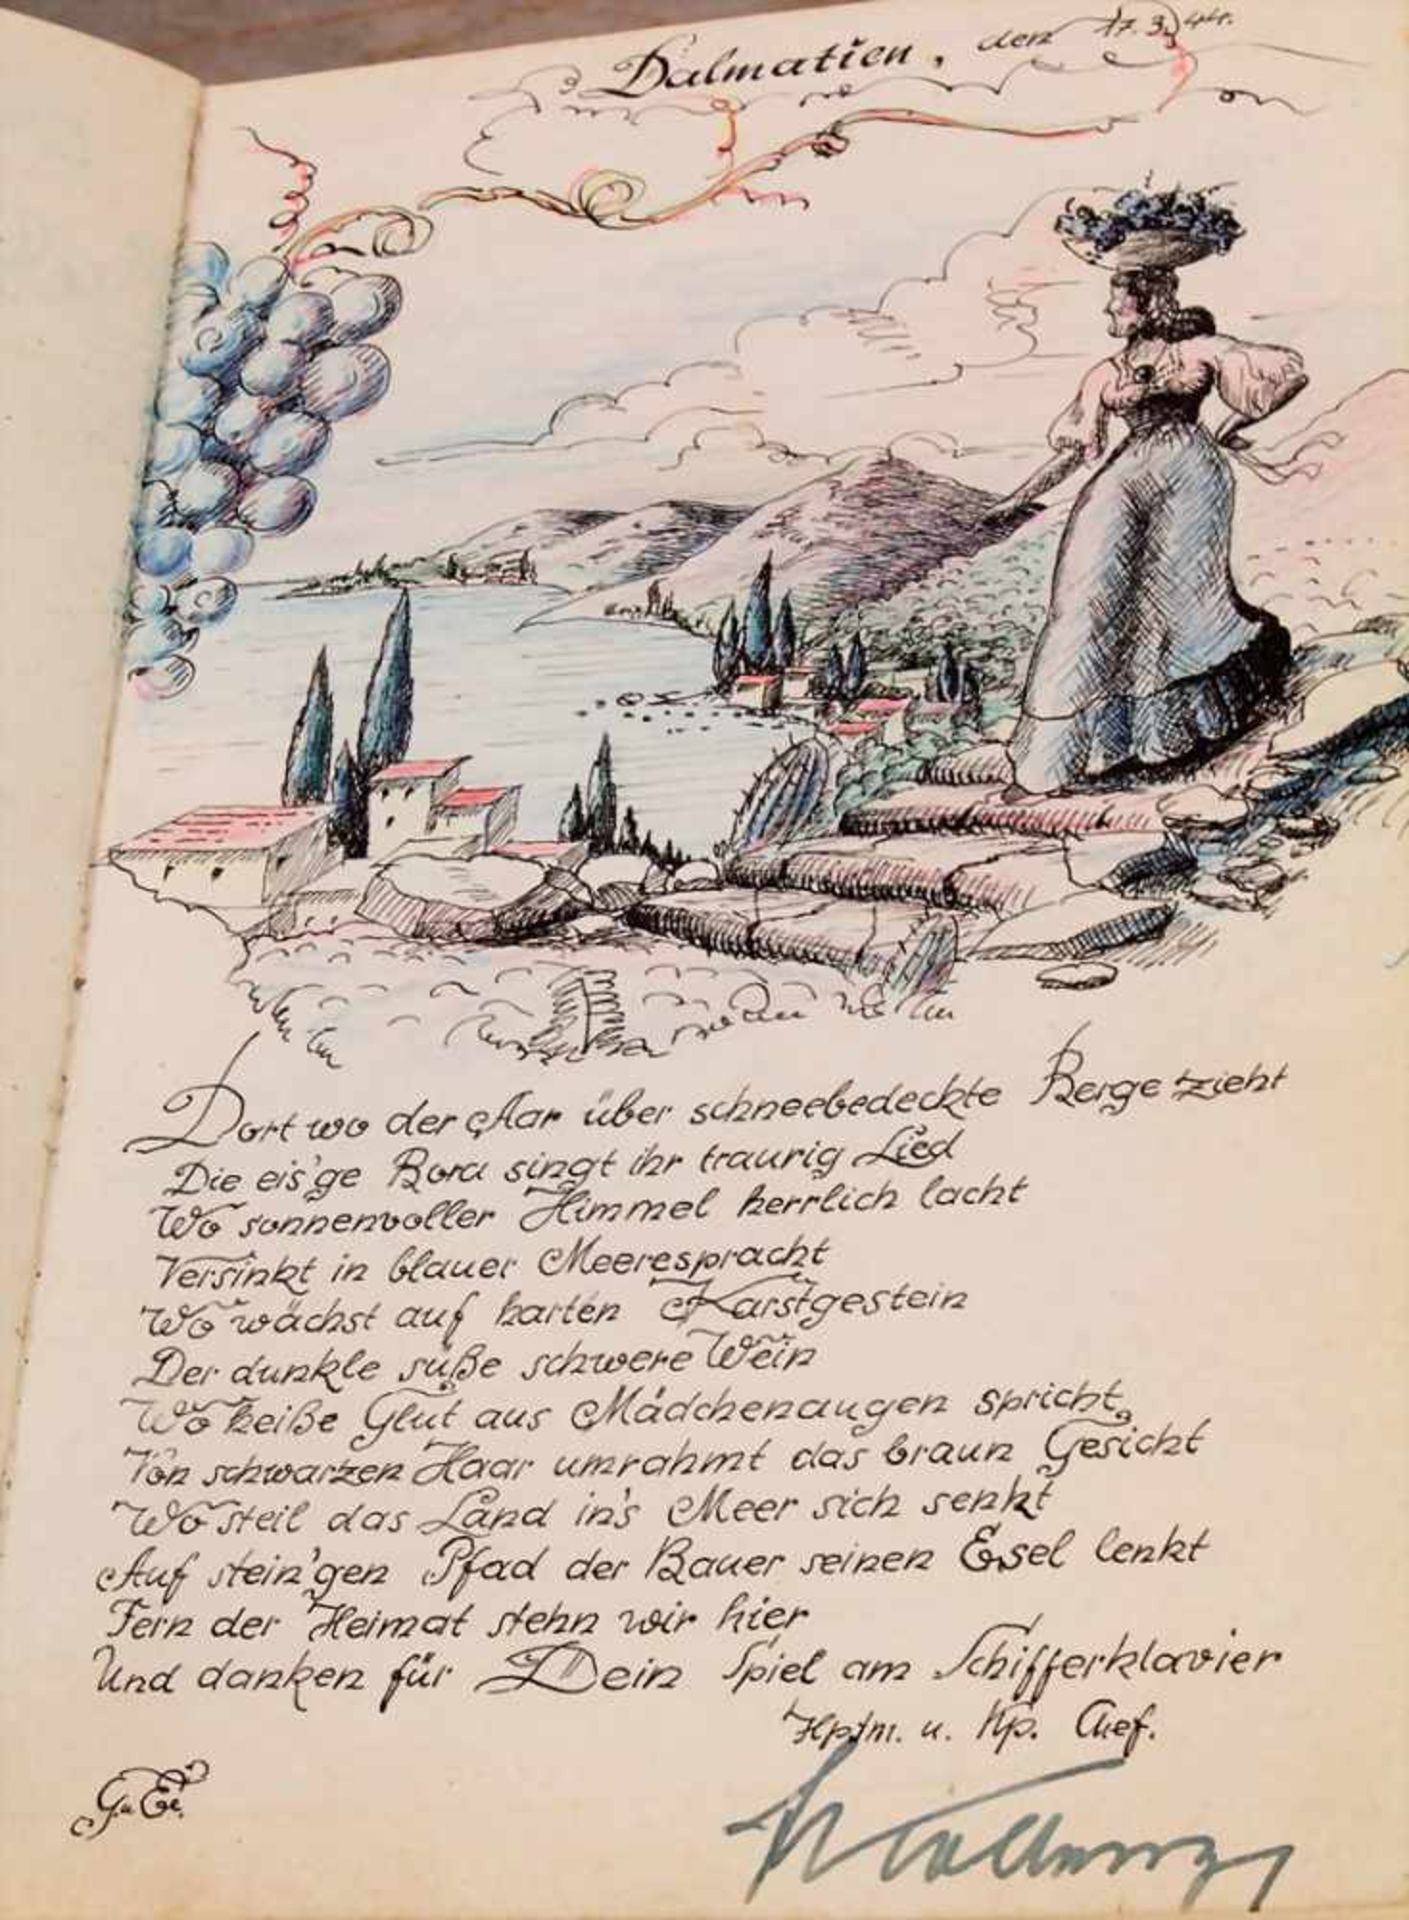 Dalmatien, den 17.3.44.
Dort wo der Aar über schneebedeckte Berge zieht
Die eis'ge Bora singt ihr traurig Lied
Wo sonnenvoller Himmel herrlich lacht
Versinkt in blauer Meerespracht
Wo wächst auf harten Karstgestein
Der dunkle süße schwere Wein
Wo heiße Glut aus Mädchenaugen spricht,
Von schwarzen Haar umrahmt das braun Gesicht
Wo steil das Land in's Meer sich senkt
Auf stein'gen Pfad der Bauer seinen Esel lenkt
Fern der Heimat stehn wir hier
Und danken für Dein Spiel am Schifferklavier
Hptm. u. Kp. Chef.